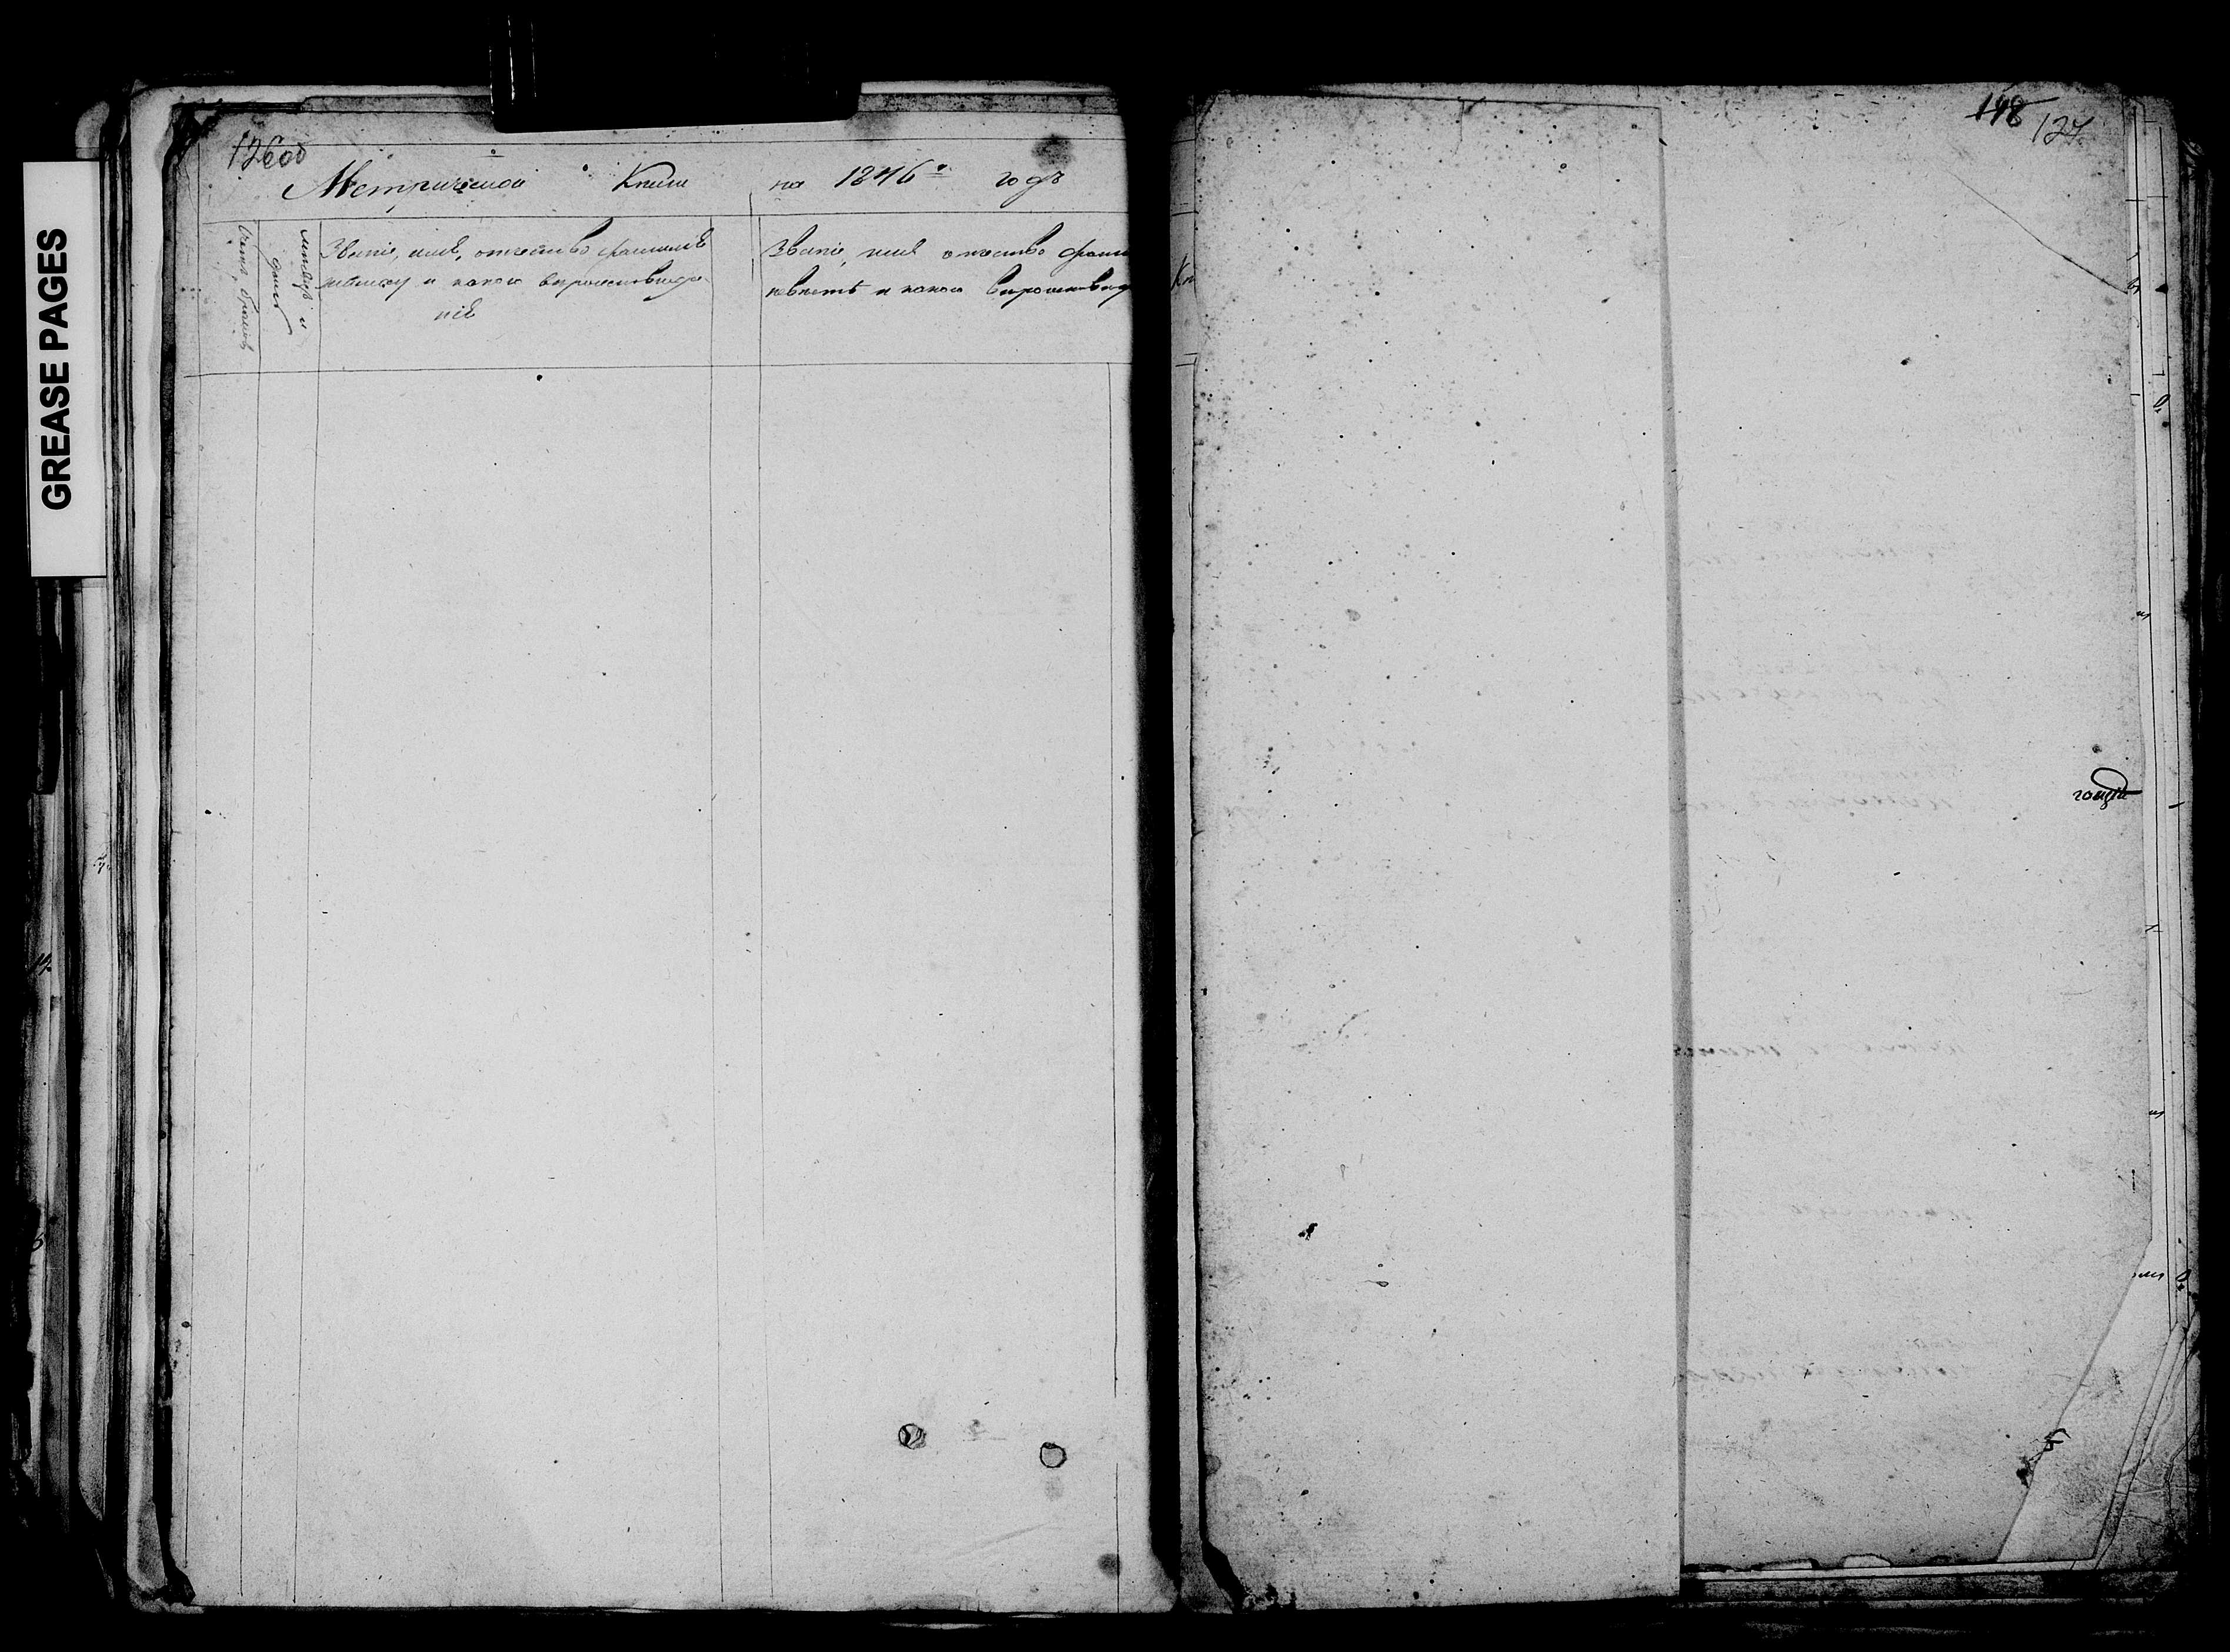 GREASE PAGES
126об
Метрической Книги на 1846 годъ
Счетъ браковъ
Мѣсяцъ и
день
Званіе, имя, отчество фамилія
жениху и какого вѣроисповѣда-
нія
Званіе, имя отчество фами
невѣстѣ и какого вѣроисповѣд
Кн
148
127